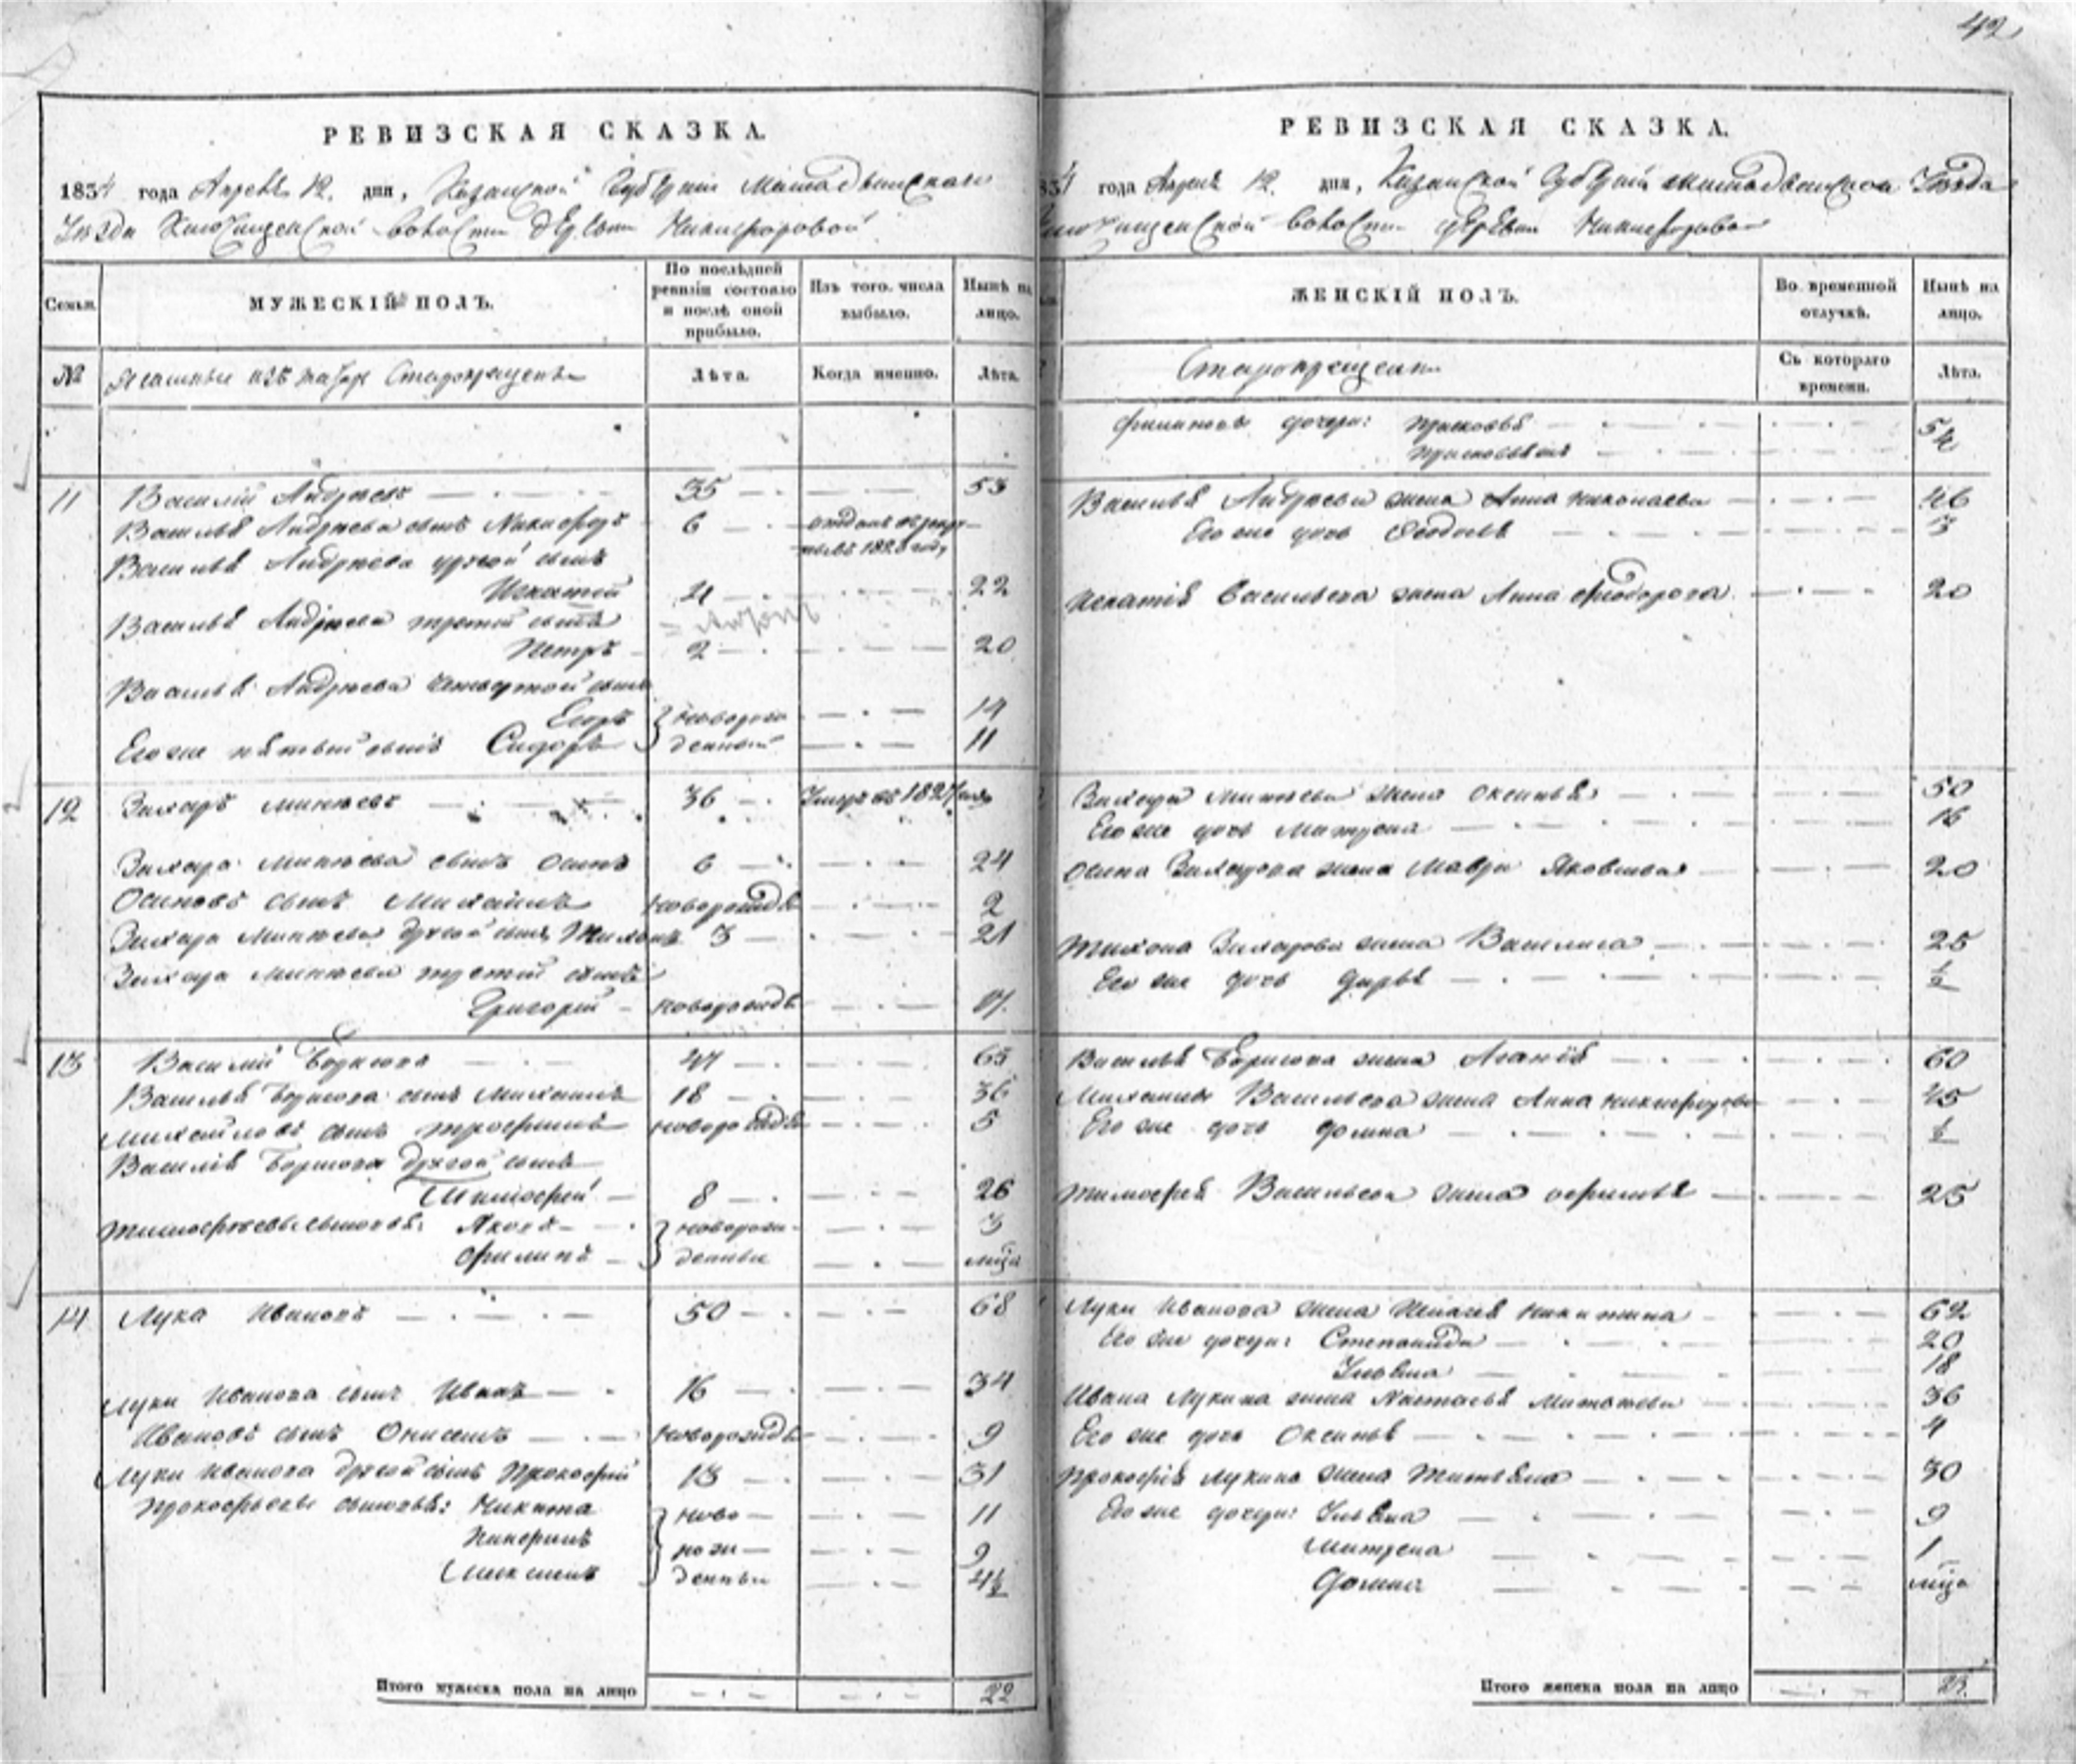 42
РЕВИЗСКАЯ СКАЗКА.
1834 года Апреля 12. дня, Казанской Губерніи
Уезда волости деревни Никифоровой
Семьи. МУЖЕСКІЙ ПОЛЪ. По послѣдней ревизіи состояло и послѣ оной прибыло. Изъ того числа выбыло. Нынѣ на лицо.
№ Ясашные изъ татаръ Старокрещены Лѣта. Когда именно. Лѣта.
11 Василій Андреевъ 35 53
Василья Андреева сынъ Никифоръ 6 отданъ въ рекруты въ году
Василья Андреева другой сынъ
Игнатій 4 22
Василья Андреева третій сынъ
Петръ 2 20
Василья Андреева четвертой сынъ
Егоръ новорож 14
Его же пятый сынъ Сидоръ денный 11
12 Захаръ Минѣевъ 36 Умеръ въ 1827 году
Захара Минѣева сынъ Осипъ 6 24
Осиповъ сынъ Михайлъ новорожде 2
Захара Минѣева другой сынъ Тихонъ 3 21
Захара Минѣева третій сынъ
Григорій новорожде 17
13 Василій Борисовъ 47 65
Василья Борисова сынъ Михайлъ 18 36
Михайловъ сынъ Трофимъ новорожде 5
Василія Борисова другой сынъ
Тимофей 8 26
Тимофѣевы сыновья: Яковъ новорож 3
Филипъ денные мѣца
14 Лука Ивановъ 50 68
Луки Иванова сынъ Иванъ 16 34
Ивановъ сынъ Онисимъ новорожде 9
Луки Иванова другой сынъ Прокофій 13 31
Прокофьевы сыновья: Никита ново 11
рож 9
Максимъ денные 4½
Итого мужеска пола на лицо 22
РЕВИЗСКАЯ СКАЗКА.
834 года Апреля 12. дня, Казанской Губерніи Уезда
волости деревни Никифоровой
ЖЕНСКІЙ ПОЛЪ. Во временной отлучкѣ. Нынѣ на лицо.
Старокрещены Съ котораго времени. Лѣта.
дочери: Прасковья 5
4
Василья Андреева жена Анна Николаева 46
Его же дочь Федосья 3
Игнатія Васильева жена Анна Федорова 20
Захара Минѣева жена Оксинья 50
Его же дочь Матрена 16
Осипа Захарова жена Мавра Яковлева 20
Тихона Захарова жена Василиса 25
Его же дочь Дарья ½
Василья Борисова жена 60
Михаила Васильева жена Анна Никифорова 45
Его же дочь Домна ½
Тимофея Васильева жена Офимья 25
Луки Иванова жена Пелагея Никитина 62
Его же дочери: Степанида 20
Ульяна 18
Ивана Лукина жена Настасья 36
Его же дочь Оксинья 4
Прокофія Лукина жена Татьяна 30
Его же дочери: Ульяна 9
Матрена 1
Домна мѣца
Итого женска пола на лицо